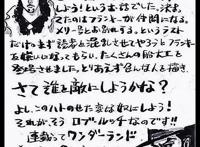 しよう！という本誌でした。次は、
てたのはフランキーが仲間になる。
メリー号とお別れする。というラスト
だけまず読者を混乱させてやろうとフランキー
を嫌いになってもらい、たくさんの敵大工を
登場させました。とりあえず色んな人を描き
さて誰を敵にしようかな？
よし、このハトのせた変な奴にしよう！
それがそう ロブ・ルッチなのです!!
連載ってワンダーランド